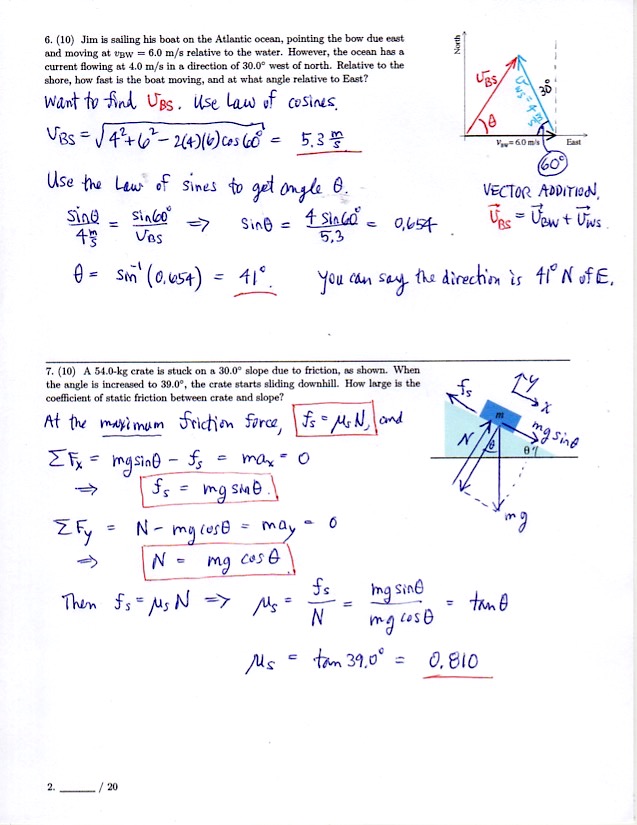 6. (10) Jim is sailing his boat on the Atlantic ocean, pointing the bow due east
and moving at v_BW = 6.0 m/s relative to the water. However, the ocean has a
current flowing at 4.0 m/s in a direction of 30.0° west of north. Relative to the
shore, how fast is the boat moving, and at what angle relative to East?
North
V_BS
V_WS = 4 m/s
30°
θ
V_BW = 6.0 m/s
East
60°
Want to find V_BS. Use Law of cosines.
V_BS = √(4² + 6² − 2(4)(6)cos60°) = 5.3 m/s
Use the Law of sines to get angle θ.
sinθ / 4 m/s = sin60° / V_BS ⇒ sinθ = 4 sin60° / 5.3 = 0.654
VECTOR ADDITION.
V⃗_BS = V⃗_BW + V⃗_WS
θ = sin⁻¹(0.654) = 41°. You can say the direction is 41° N of E.
7. (10) A 54.0-kg crate is stuck on a 30.0° slope due to friction, as shown. When
the angle is increased to 39.0°, the crate starts sliding downhill. How large is the
coefficient of static friction between crate and slope?
fs
y
x
m
mg sinθ
N
θ
θ
mg
At the maximum friction force, fs = μs N, and
ΣFx = mg sinθ − fs = max = 0
⇒ fs = mg sinθ.
ΣFy = N − mg cosθ = may = 0
⇒ N = mg cosθ
Then fs = μs N ⇒ μs = fs / N = mg sinθ / mg cosθ = tanθ
μs = tan 39.0° = 0.810
2. ______ / 20